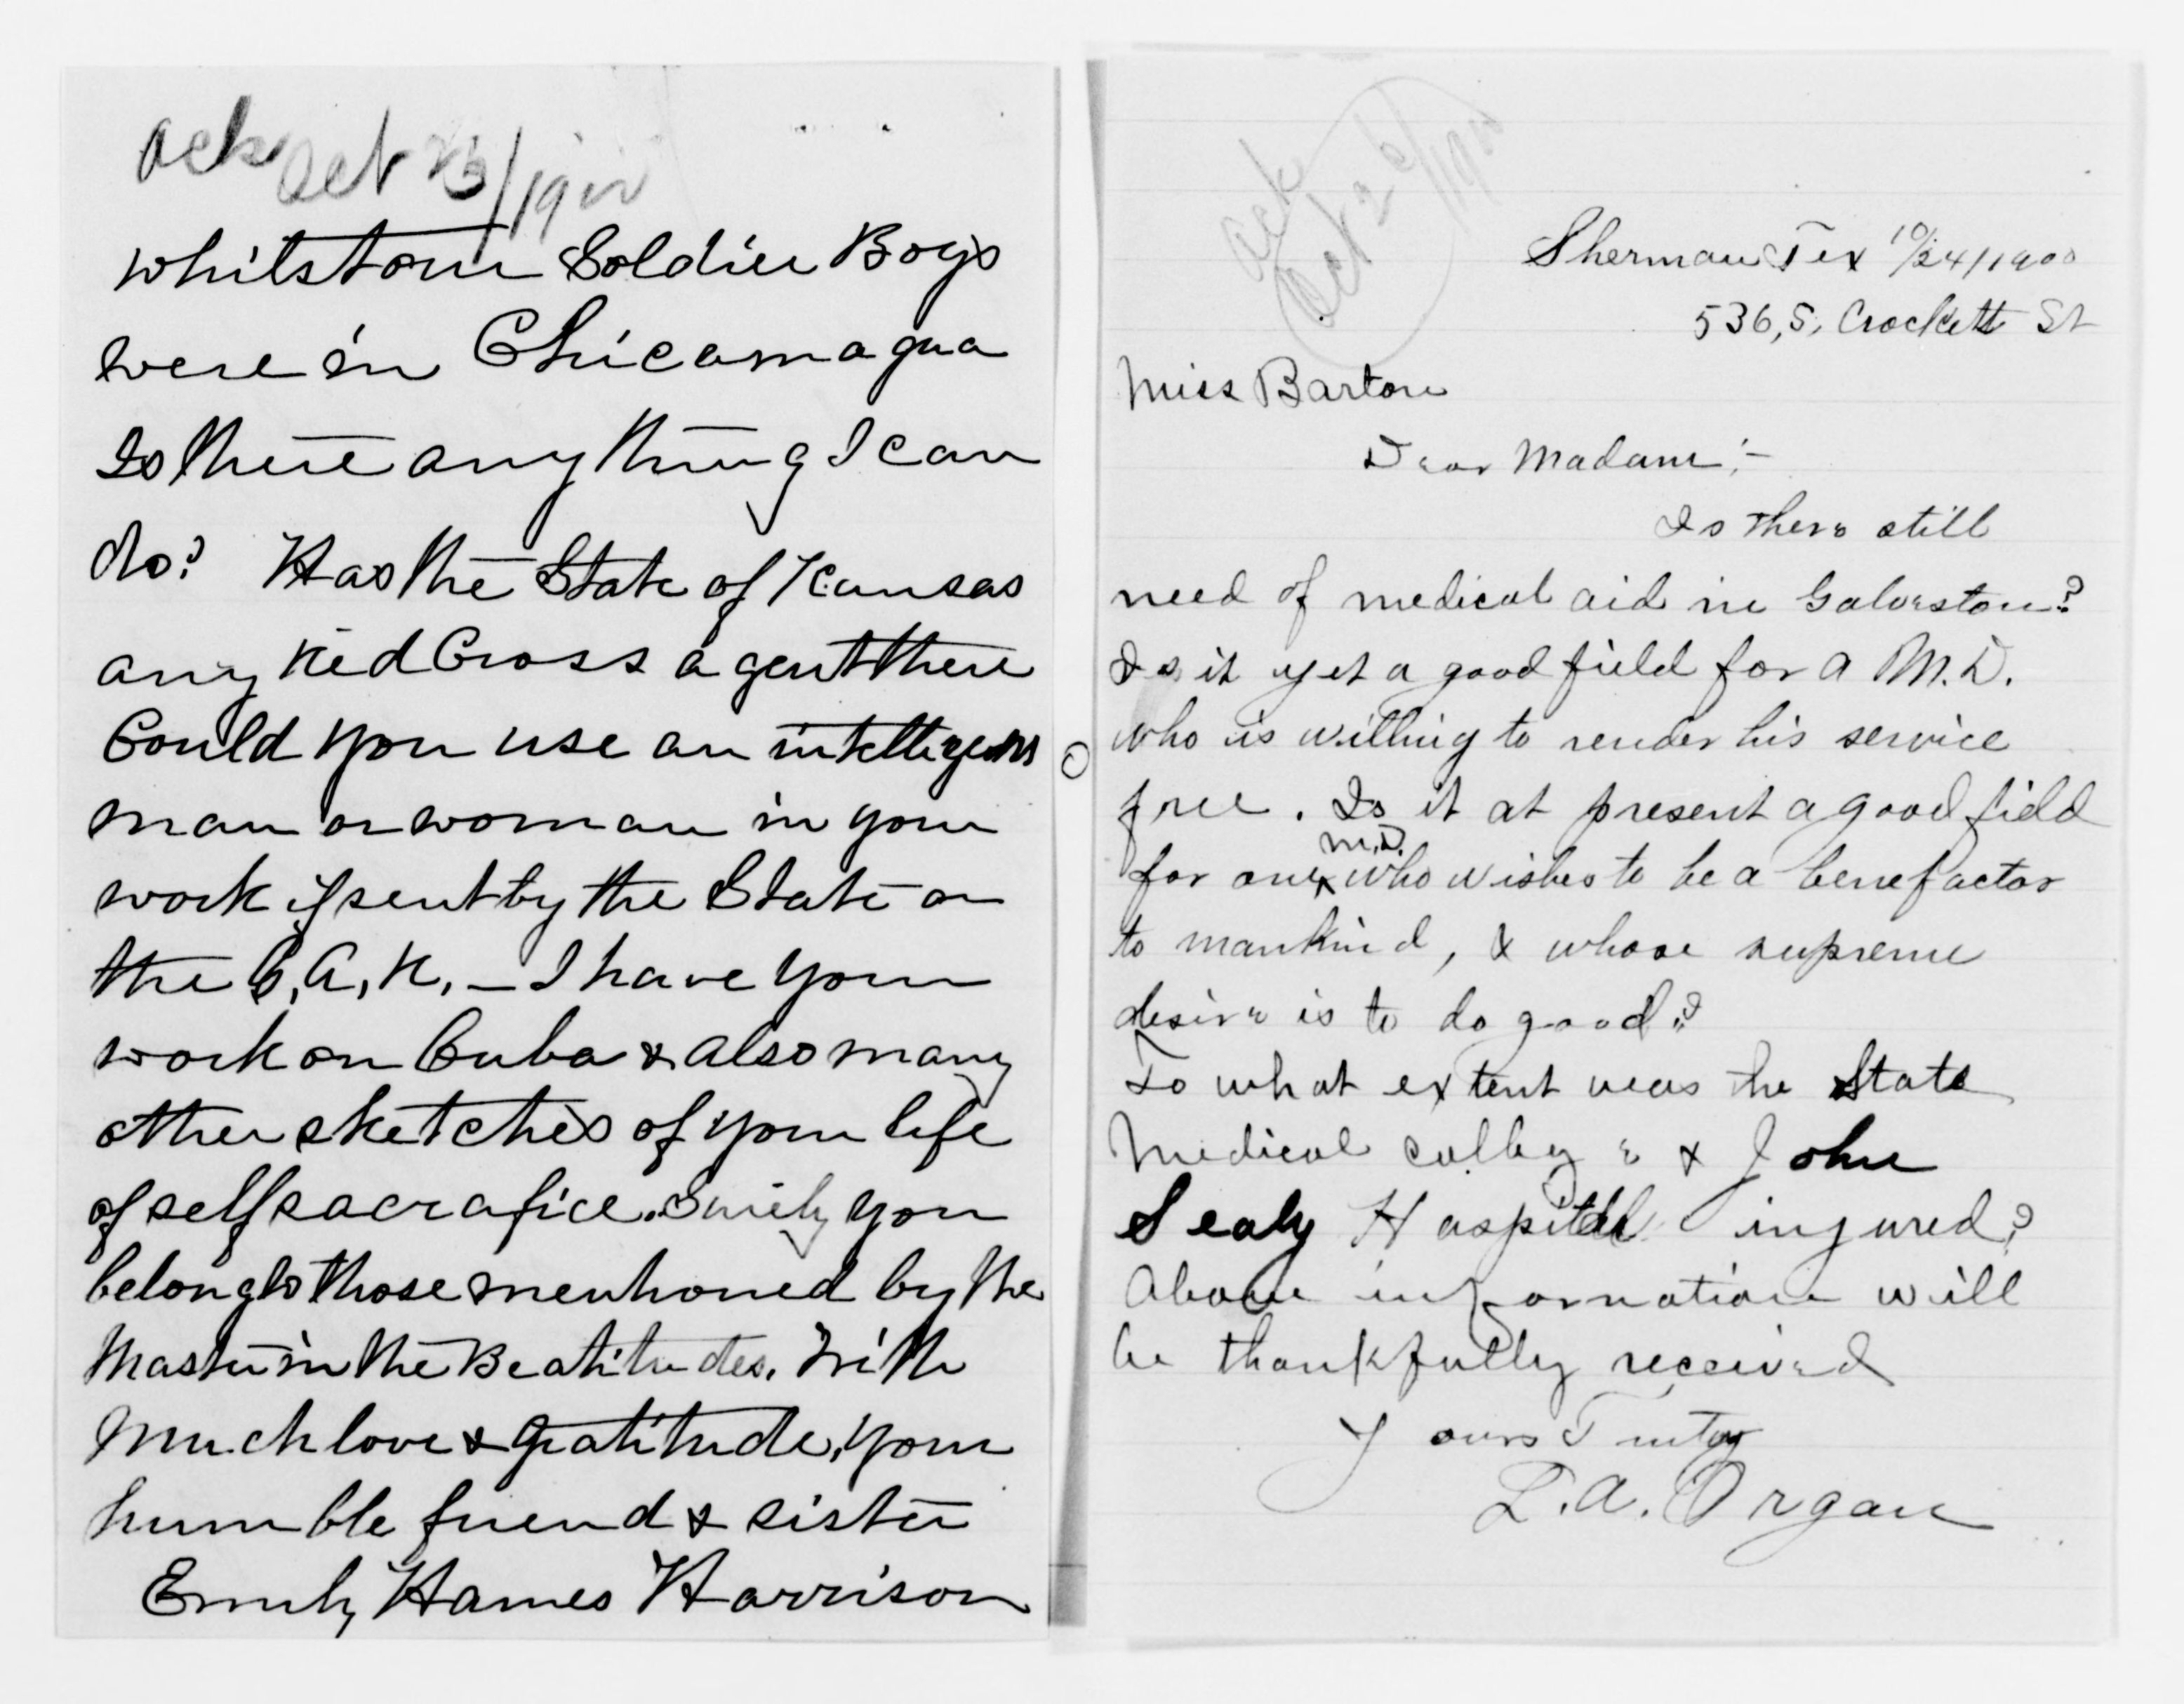 ack Oct 23/1900
whilst our Soldier Boys
were in Chicamagua
Is there any thing I can
do? Has the State of Kansas
any Red Cross agent there
Could you use an intelligent
man or woman in your
work if sent by the State or
the G, A, R, – I have your
work on Cuba & also many
other sketches of your life
of self sacrafice. Surely you
belong to those mentioned by the
Master in the Beatitudes. With
Much love & gratitude, your
humble friend & sister
Emily Hames Harrison
ack
Oct 26/1900
Sherman Tex 10/24/1900
536, S, Crockett St
Miss Barton
Dear Madam;–
Is there still
need of medical aid in Galveston?
Is it yet a good field for a M.D.
who is willing to render his service
free. Is it at present a good field
for one M.D. who wishes to be a benefactor
to mankind, & whose supreme
desire is to do good?
To what extent was the State
Medical colleg e & John
Sealy Hospital injured?
Above information will
be thankfully received
Yours Truly
L. A. Organ